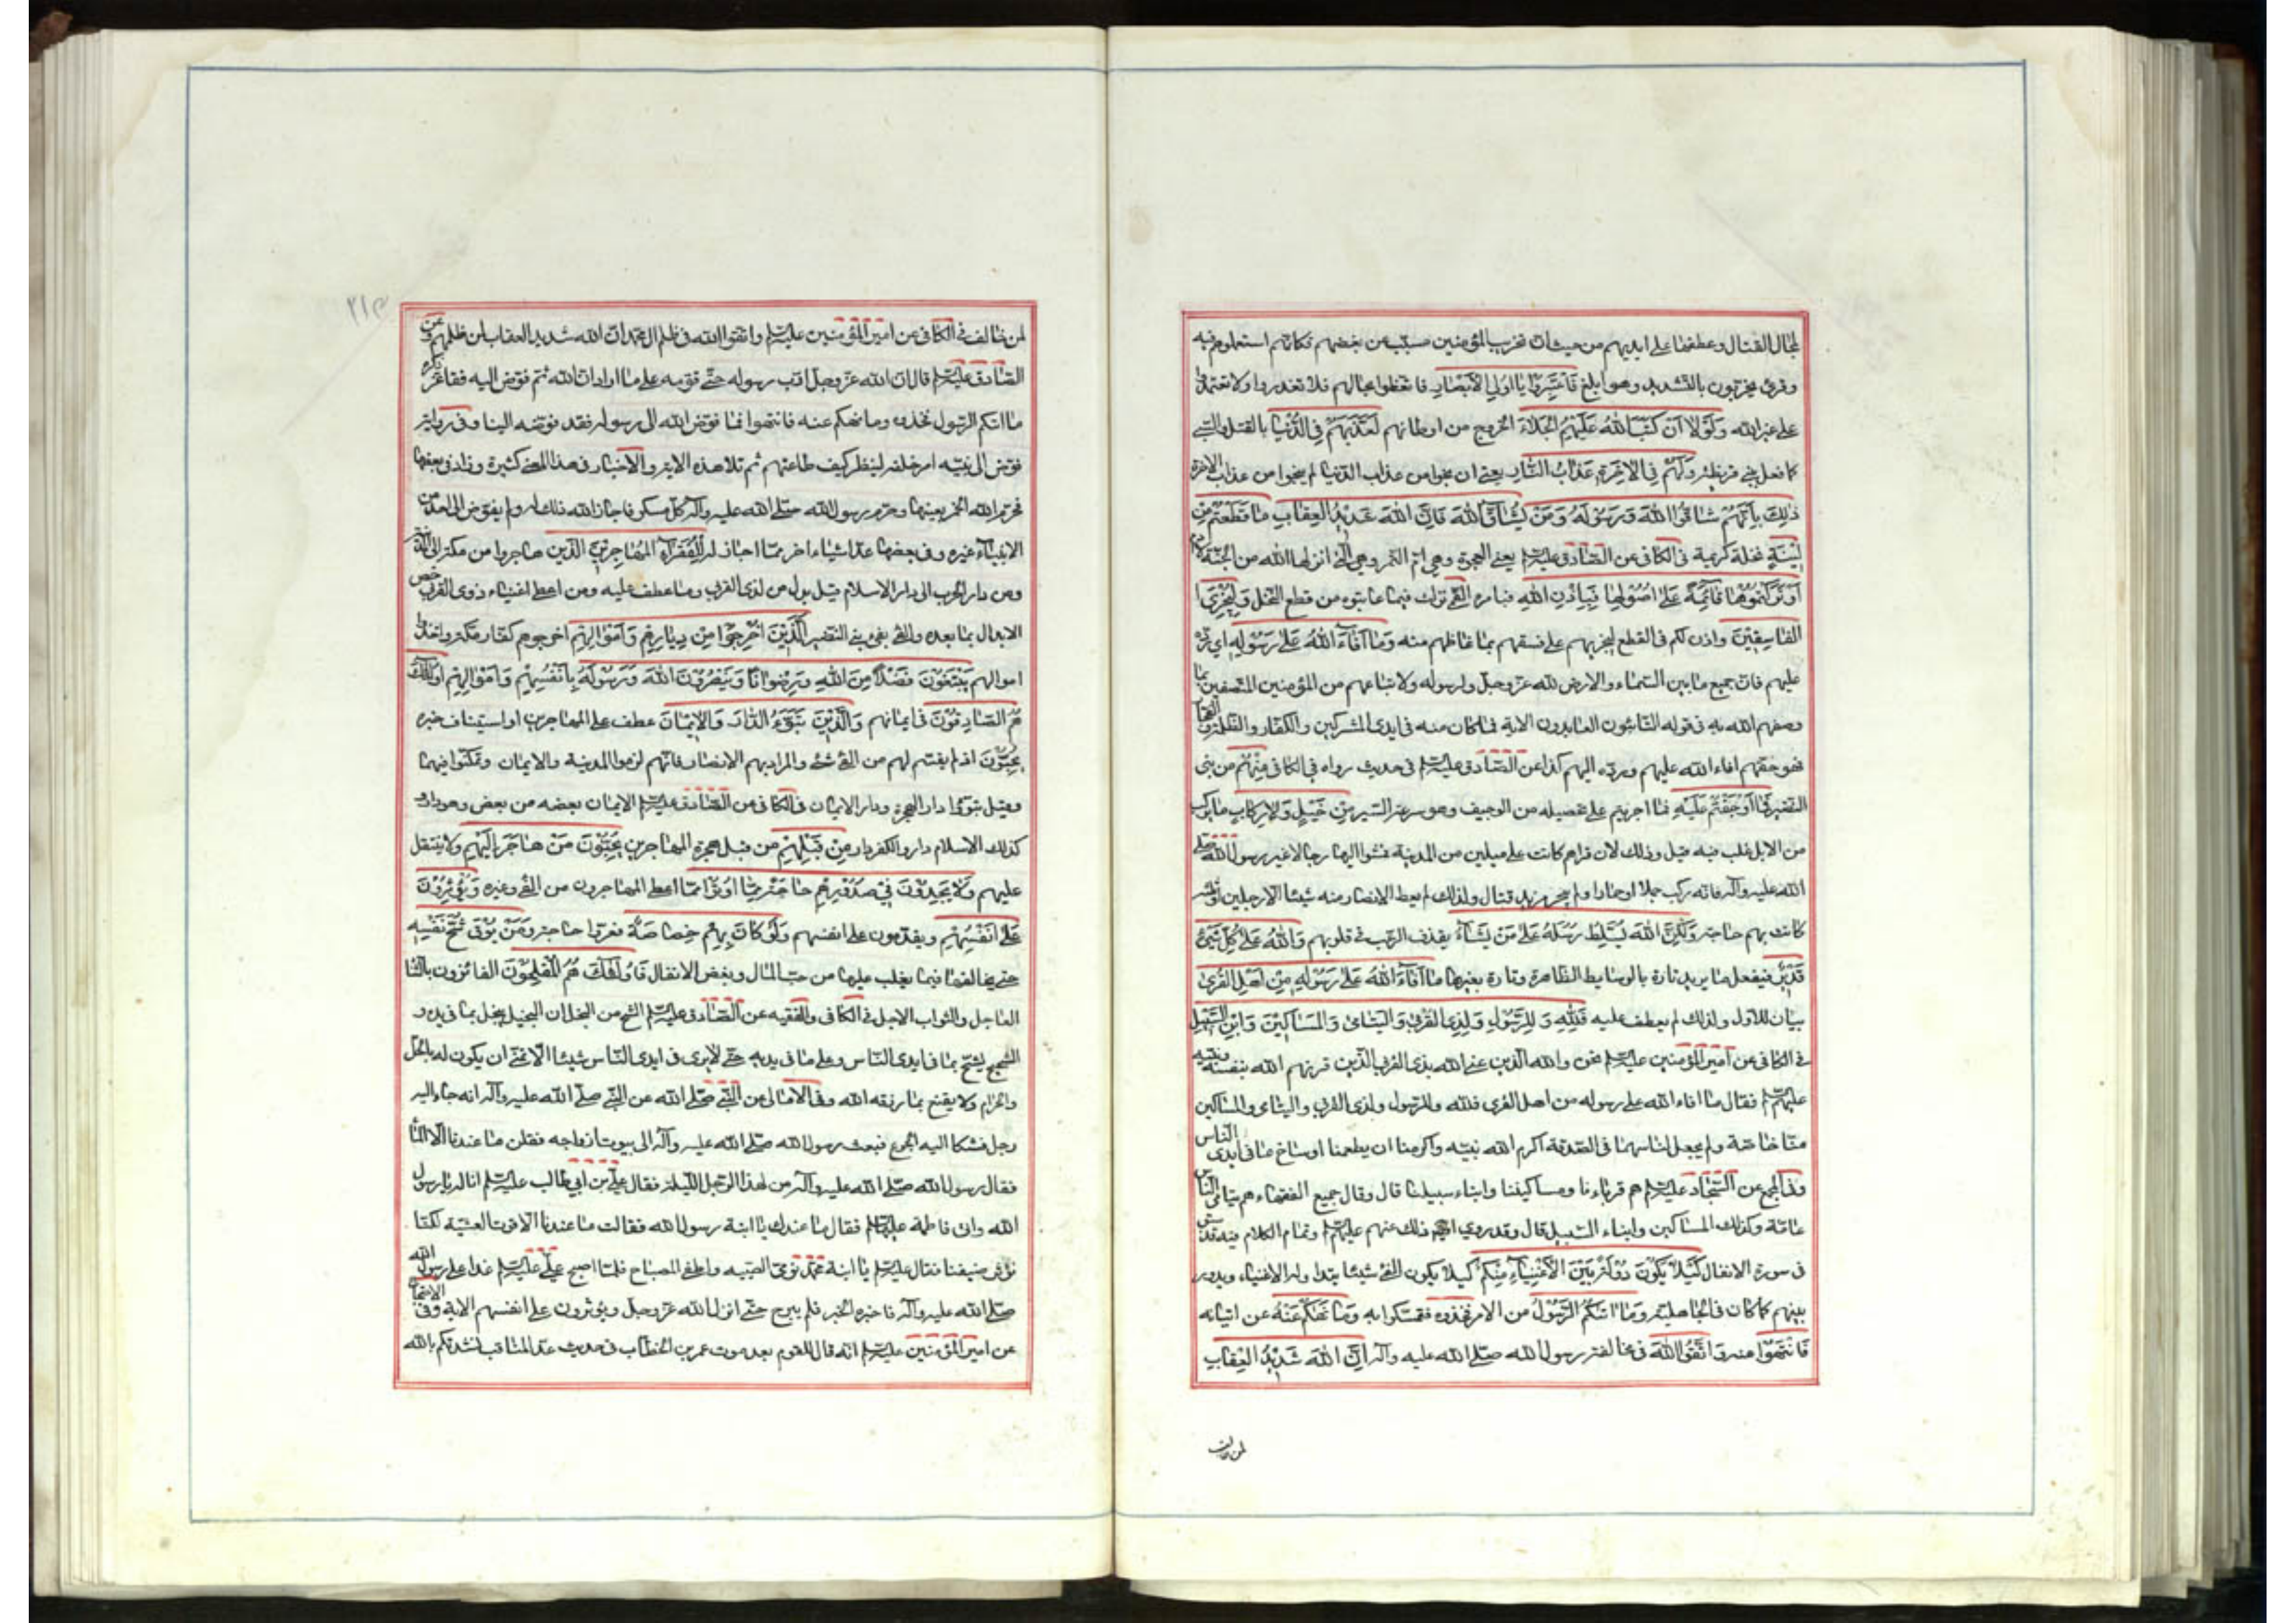 لمجال القتال وعطفها على ايديهم من حيث ان تخريب المؤمنين مسبّب عن بغضهم فكانّهم استعملوهم فيه
وقرئ يخرّبون بالتشديد وهو ابلغ فَاعْتَبِرُوا يَا اُولِي الْاَبْصَارِ فاتعظوا بحالهم فلا تغدروا ولا تعتمدوا
على غير الله وَلَوْلَا اَنْ كَتَبَ اللهُ عَلَيْهِمُ الْجَلَاءَ الخروج من اوطانهم لَعَذَّبَهُمْ فِي الدُّنْيَا بالقتل والسبي
كما فعل ببني قريظة وَلَهُمْ فِي الْاخِرَةِ عَذَابُ النَّارِ يعني ان نجوا من عذاب الدنيا لم ينجوا من عذاب الاخرة
ذٰلِكَ بِاَنَّهُمْ شَاقُّوا اللهَ وَرَسُولَهُ وَمَنْ يُشَاقِّ اللهَ فَاِنَّ اللهَ شَدِيدُ الْعِقَابِ مَا قَطَعْتُمْ مِنْ
لِينَةٍ نخلة كريمة في الكافي عن الصّادق عليه السلم يعني العجوة وهي امّ التمر وهي التي انزلها الله من الجنة لادم
اَوْ تَرَكْتُمُوهَا قَائِمَةً عَلٰى اُصُولِهَا فَبِاِذْنِ اللهِ فبامره التي ترك فيما عابتوه من قطع النخل وَلِيُخْزِيَ
الْفَاسِقِينَ واذن لكم في القطع ليخزيهم على فسقهم بما غاظهم منه وَمَا اَفَاءَ اللهُ عَلٰى رَسُولِهِ اي ردّه
عليهم فان جميع ما بين السماء والارض لله عزّ وجلّ ولرسوله ولاتباعهم من المؤمنين المتّصفين بما
وصفهم الله به في قوله التائبون العابدون الاية فما كان منه في ايدي المشركين والكفار والظلمة والفجار
فهو حقهم افاء الله عليهم وردّه اليهم كذا عن الصّادق عليه السلم في حديث رواه في الكافي مِنْهُمْ من بني
النضير فَمَا اَوْجَفْتُمْ عَلَيْهِ فما اجريتم على تحصيله من الوجيف وهو سرعة السير مِنْ خَيْلٍ وَلَا رِكَابٍ ما يركب
من الابل غلب فيه قيل وذلك لان قراهم كانت على ميلين من المدينة فمشوا اليها رجالا غير رسول الله صلى
الله عليه وآله فانه ركب جملا او حمارا ولم يجر مزيد قتال ولذلك لم يعط الانصار منه شيئا الا رجلين او ثلثة
كانت بهم حاجة وَلٰكِنَّ اللهَ يُسَلِّطُ رُسُلَهُ عَلٰى مَنْ يَشَاءُ بقذف الرعب في قلوبهم وَاللهُ عَلٰى كُلِّ شَيْءٍ
قَدِيرٌ فيفعل ما يريد تارة بالوسايط الظاهرة وتارة بغيرها مَا اَفَاءَ اللهُ عَلٰى رَسُولِهِ مِنْ اَهْلِ الْقُرٰى
بيان للاول ولذلك لم يعطف عليه فَلِلّٰهِ وَلِلرَّسُولِ وَلِذِي الْقُرْبٰى وَالْيَتَامٰى وَالْمَسَاكِينَ وَابْنِ السَّبِيلِ
في الكافي عن امير المؤمنين عليه السلم نحن والله الذين عنى الله بذي القربى الذين قرنهم الله بنفسه ونبيّه
عليهم السلم فقال ما افاء الله على رسوله من اهل القرى فلله وللرسول ولذي القربى واليتامى والمساكين
منّا خاصّة ولم يجعل لنا سهما في الصّدقة اكرم الله نبيّه واكرمنا ان يطعمنا اوساخ ما في ايدي الناس
وفي المجمع عن السّجّاد عليه السلم هم قرباؤنا ومساكيننا وابناء سبيلنا قال وقال جميع الفقهاء هم يتامى الناس
عامّة وكذلك المساكين وابناء السبيل قال وقد روي ذلك عنهم عليهم السلم وتمام الكلام فيه قد سبق
في سورة الانفال كَيْلَا يَكُونَ دُولَةً بَيْنَ الْاَغْنِيَاءِ مِنْكُمْ كيلا يكون الفئ شيئا يتداوله الاغنياء ويدور
بينهم كما كان في الجاهلية وَمَا اٰتٰيكُمُ الرَّسُولُ من الامر فَخُذُوهُ فتمسّكوا به وَمَا نَهٰيكُمْ عَنْهُ عن اتيانه
فَانْتَهُوا عنه وَاتَّقُوا اللهَ في مخالفة رسول الله صلى الله عليه وآله اِنَّ اللهَ شَدِيدُ الْعِقَابِ
لمن خالف
لمن خالف في الكافي عن امير المؤمنين عليه السلم واتقوا الله في ظلم ال محمد ان الله شديد العقاب لمن ظلمهم وعن
الصّادق عليه السلم قال ان الله عزّ وجلّ ادّب رسوله حتّى قوّمه على ما اراد ان الله ثم فوّض اليه فقال عزّ ذكره
ما اتيكم الرّسول فخذوه وما نهيكم عنه فانتهوا فما فوّض الله الى رسوله فقد فوّضه الينا وفي رواية
فوّض الى نبيّه امر خلقه لينظر كيف طاعتهم ثم تلا هذه الاية والاخبار في هذا المعنى كثيرة وزاد في بعضها
فحرّم الله الخمر بعينها وحرّم رسول الله صلّى الله عليه وآله كل مسكر فاجاز الله ذلك له ولم يفوّض الى احد من
الانبياء غيره وفي بعضها عدّ اشياء اخر ممّا اجاز له لِلْفُقَرَاءِ الْمُهَاجِرِينَ الّذين هاجروا من مكة الى المدينة
ومن دار الحرب الى دار الاسلام قيل بدل من لذي القربى وما عطف عليه ومن اعطى اغنياء ذوي القربى خصّ
الابدال بما بعده والفئ بفئ بني النضير الَّذِينَ اُخْرِجُوا مِنْ دِيَارِهِمْ وَاَمْوَالِهِمْ اخرجوهم كفّار مكة واخذوا
اموالهم يَبْتَغُونَ فَضْلًا مِنَ اللهِ وَرِضْوَانًا وَيَنْصُرُونَ اللهَ وَرَسُولَهُ بِاَنْفُسِهِمْ وَاَمْوَالِهِمْ اُولٰئِكَ
هُمُ الصَّادِقُونَ في ايمانهم وَالَّذِينَ تَبَوَّءُ الدَّارَ وَالْاِيمَانَ عطف على المهاجرين او استيناف خبره
يُحِبُّونَ اذ لم يقسم لهم من الفئ شئ والمراد بهم الانصار فانّهم لزموا المدينة والايمان وتمكّنوا فيهما
وقيل تبوّؤا دار الهجرة ودار الايمان في الكافي عن الصّادق عليه السلم الايمان بعضه من بعض وهو دار و
كذلك الاسلام دار والكفر دار مِنْ قَبْلِهِمْ من قبل هجرة المهاجرين يُحِبُّونَ مَنْ هَاجَرَ اِلَيْهِمْ ولا يثقل
عليهم وَلَا يَجِدُونَ فِي صُدُورِهِمْ حَاجَةً مِمَّا اُوتُوا ممّا اعطي المهاجرون من الفئ وغيره وَيُؤْثِرُونَ
عَلٰى اَنْفُسِهِمْ ويقدّمون على انفسهم وَلَوْ كَانَ بِهِمْ خَصَاصَةٌ فقر او حاجة وَمَنْ يُوقَ شُحَّ نَفْسِهِ
حتى يخالفها فيما يغلب عليها من حبّ المال وبغض الانفاق فَاُولٰئِكَ هُمُ الْمُفْلِحُونَ الفائزون بالثناء
العاجل والثواب الاجل في الكافي والفقيه عن الصّادق عليه السلم الشحّ من البخل ان البخيل يبخل بما في يده و
الشحيح يشحّ بما في ايدي النّاس وعلى ما في يديه حتّى لا يرى في ايدي النّاس شيئا الّا تمنّى ان يكون له بالحلّ
والحرام ولا يقنع بما رزقه الله وفي الامالي عن النّبي صلى الله عن النّبي صلّى الله عليه وآله انه جاء اليه
رجل فشكا اليه الجوع فبعث رسول الله صلّى الله عليه وآله الى بيوت ازواجه فقلن ما عندنا الّا الماء
فقال رسول الله صلّى الله عليه وآله من لهذا الرّجل الليلة فقال علي بن ابي طالب عليه السلم انا له يا رسول
الله واتى فاطمة عليها السلم فقال ما عندك يا ابنة رسول الله فقالت ما عندنا الّا قوت العشيّة لكنّا
نؤثر ضيفنا فقال عليه السلم يا ابنة محمّد نوّمي الصّبية واطفئ المصباح فلمّا اصبح علي عليه السلم غدا على رسول الله
صلّى الله عليه وآله فاخبره الخبر فلم يبرح حتّى انزل الله عزّ وجلّ ويؤثرون على انفسهم الاية وفي الاحتجاج
عن امير المؤمنين عليه السلم انه قال للقوم بعد موت عمر بن الخطّاب في حديث عدّ المناقب نشدتكم بالله